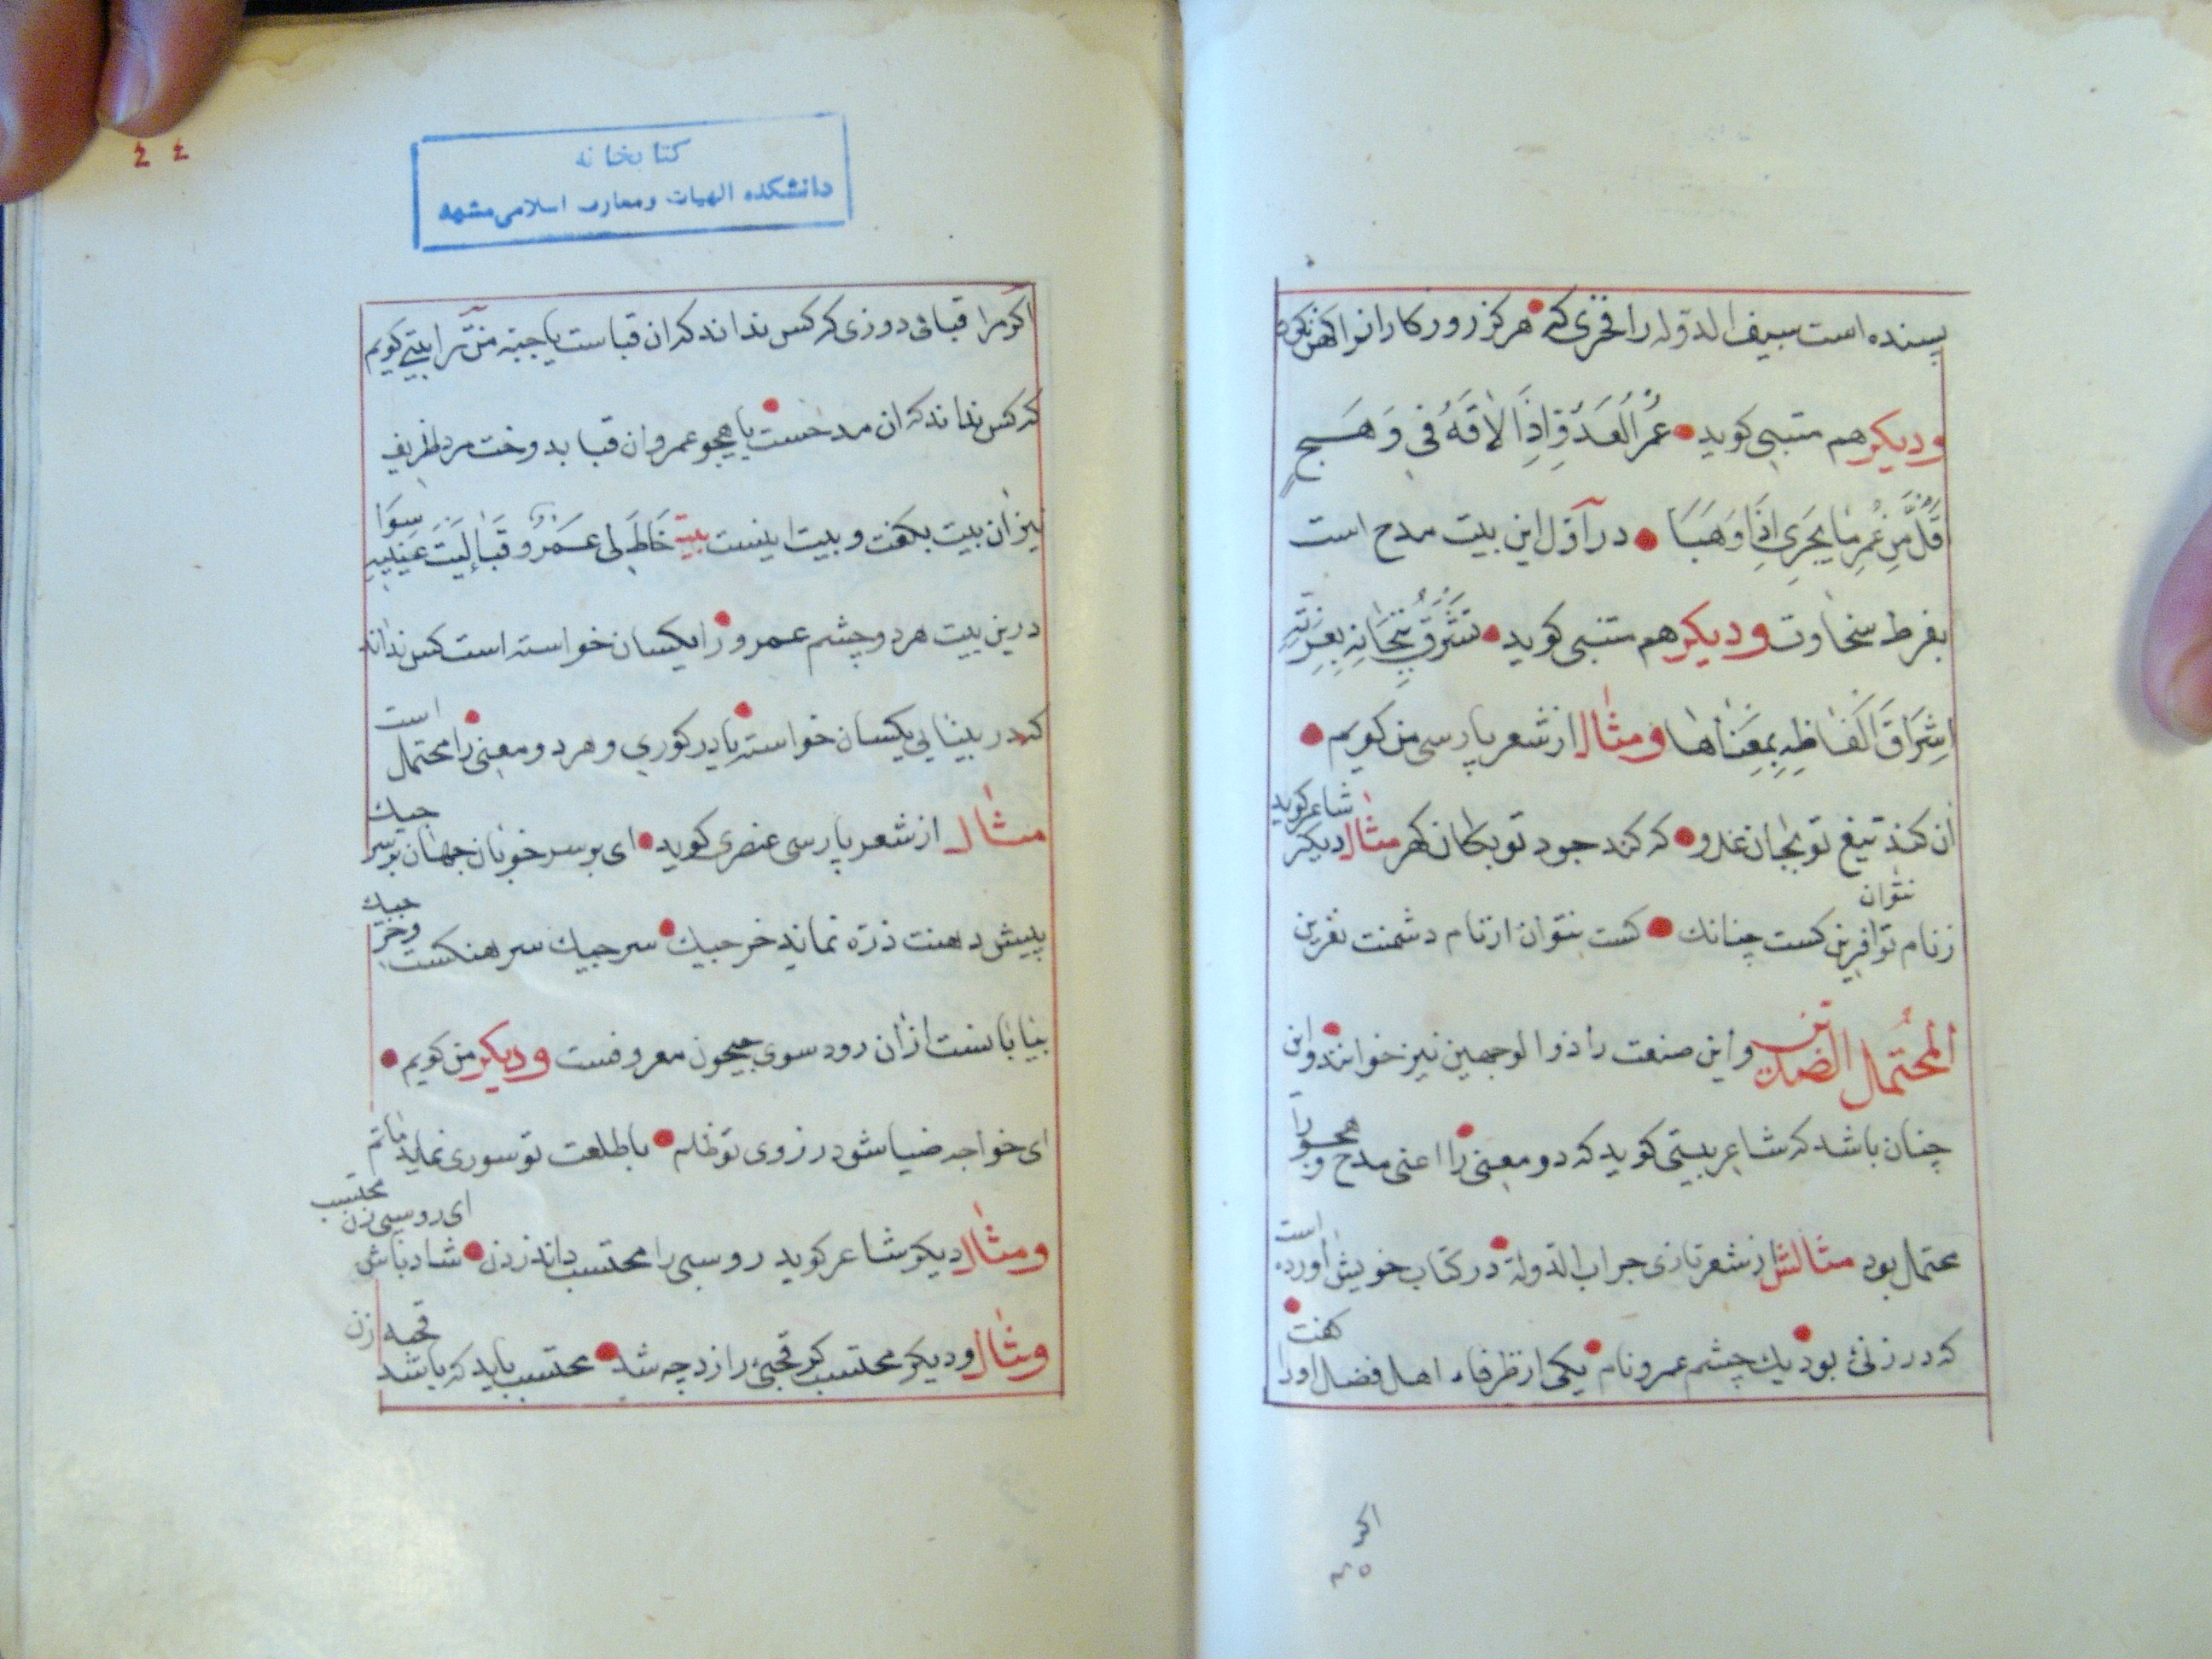 پسنده است سیف الدوله را فخری که هرکز روزکار انرا کهن نکرد
ودیکر هم متنبی کوید عُمرُ العَدُوِّ اِذا لاقَهُ فی وَهَجٍ
قَلُّ مِن عُمرِ ما یَحوِی اِذا وَهَبَا در اوّل این بیت مدح است
بفرط سخاوت ودیکر هم متنبی کوید تُشرِقُ تیجانِهِ بِعِزَّتِهِ
اِشراقَ اَلفاظِهِ بِمَعناها ومثال از شعر پارسی من کویم
شاعر کوید
ان کند تیغ تو بجان عدو که کند جود تو بکان کهر مثال دیکر
نتوان
زنام تو افرین کست چنانك کست نتوان ازنام دشمنت نفرین
المُحتَمل الضدین واین صنعت را ذوالوجهین نیز خوانند واین
چنان باشد که شاعر بیتی کوید که دو معنی را اعنی مدح و هجو را
محتمل بود مثالش از شعر تازی جراب الدولة در کتاب خویش اورده است
که درزئ بود یك چشم عمرو نام یکی از ظرفاء اهل فضل اورا کفت
اکر
٤٤
کتابخانه
دانشکده الهیات ومعارف اسلامی مشهد
اکر مرا قبائی دوزی که کس نداند که ان قباست یا جبه من ترا بیتی کویم
که کس نداند که ان مدحست یا هجو عمرو ان قبا بدوخت مرد ظریف
نیز ان بیت بکفت وبیت اینست بیت خاطَ لی عَمرٌو قَبا لَیتَ عَینَیهِ سِوَا
درین بیت هر دو چشم عمرو را یکسان خواسته است کس نداند
که در بینایی یکسان خواسته یا در کوری و هر دو معنی را محتمل است
مثال از شعر پارسی عنصری کوید ای بر سر خوبان جهان بر سر جیك
پیش دهنت ذرّه نماید خرجیك سرجیك سرهنکست وخرجیك
بیابانست ازان رود سوی جیحون معروفست ودیکر من کویم
ای خواجه ضیا شود ز روی تو ظلم با طلعت تو سوری نماید ماتم
ومثال دیکر شاعر کوید روسبی را محتسب داند زدن شاد باش ای روسبی زن محتسب
ومثال ودیکر محتسب کر قحبهٔ را زد چه شد محتسب باید که باشد قحبه زن